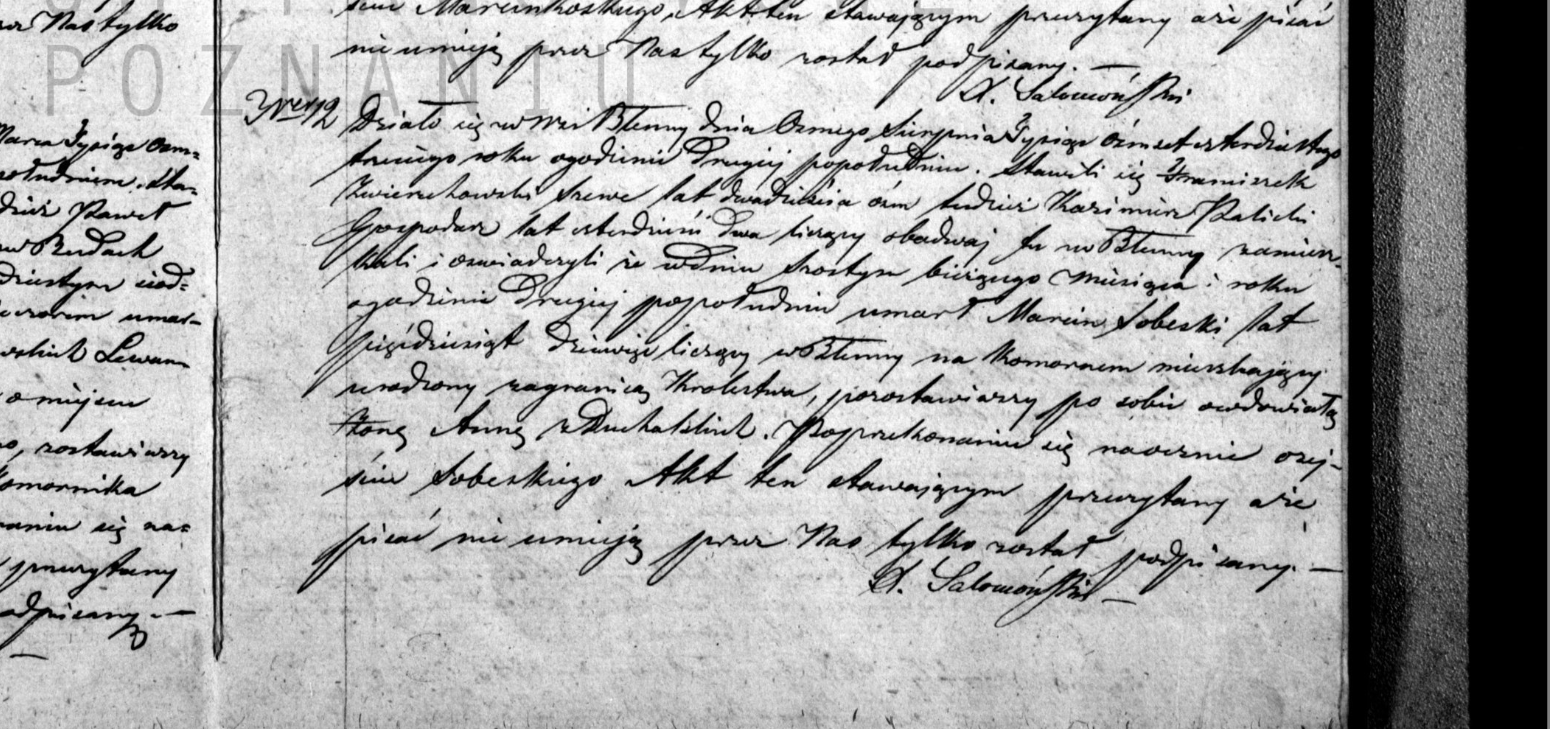 ner Nas tylko
Marca Tysiąc Ośm=
południem. Sta=
dzież Paweł
w Rudach
dziestym siod=
wskich Lewan
o miejscu
o, zostawiwszy
komornika
naniu się na=
przeczytany
odpisany.—
sciu Marcinkoskiego, Akt ten stawającym przeczytany a że pisać
nie umieją przez Nas tylko został podpisany.—
X. Salomoński
POZNANIU
12 Działo się w Wsi Błenny dnia Osmego Sierpnia Tysiąc ósmset czterdziestego
trzeciego roku o godzinie Drugiej popołudniu. Stawili się Franciszek
Zwierzchowski Szewc lat dwadzieścia ósm tudzież Kazimierz Kalicki
Gospodarz lat czterdzieści dwa liczący obadwaj tu w Błenny zamiesz=
kali i oswiadczyli że w dniu Szostym bieżącego miesiąca i roku
o godzinie Drugiej popołudniu umarł Marcin Sobeski lat
pięćdziesiąt dziewięć liczący w Błenny na komornem mieszkający
urodzony zagranicą Krolestwa, pozostawiwszy po sobie owdowiałą
Żonę Annę z Duchalskich. Po przekonaniu się naocznie o zej=
sciu Sobeskiego Akt ten stawającym przeczytany a że
pisać nie umieją przez Nas tylko został podpisany.—
X. Salomoński—